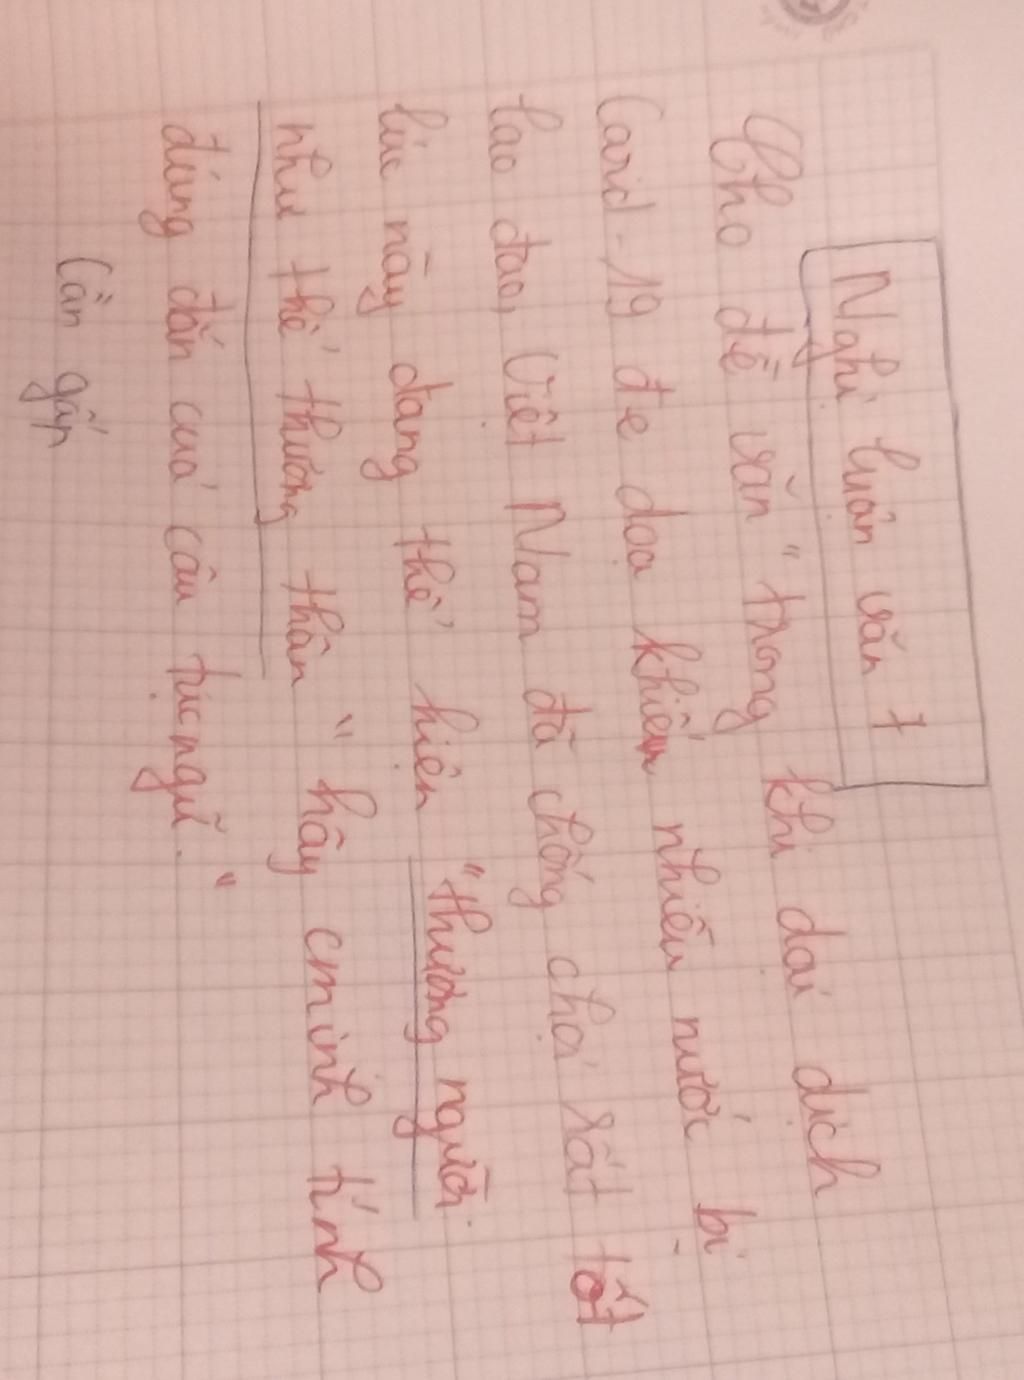 Nghị luận văn 7
Cho đề văn " trong khi dai dịch
Covid-19 đe dọa khiến nhiều nước bị
lao đao, Việt Nam đã chống chọi rất tốt
lúc này đang thể hiện "thương người
như thể thương thân " hãy cminh tính
đúng đắn của câu tục ngữ. "
Cần gấp